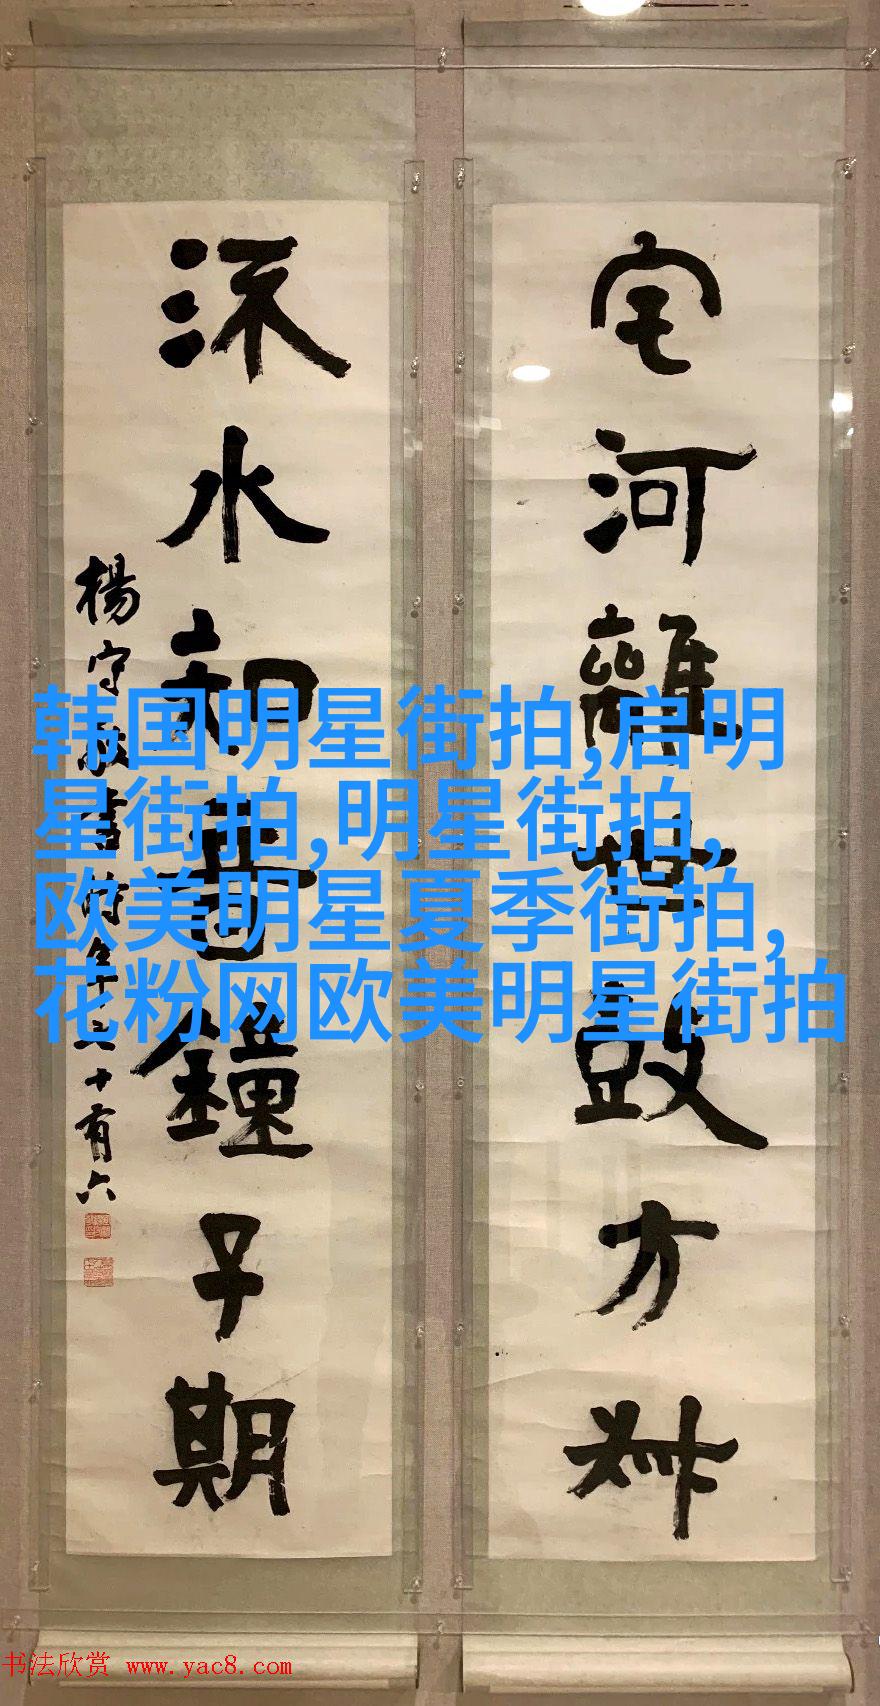 宅河離世鼓方
水知音鐘子期
楊守敬書時年十有六
韩国明星街拍,启明
星街拍,明星街拍,
欧美明星夏季街拍,
花粉网欧美明星街拍
书法欣赏 www.yac8.com